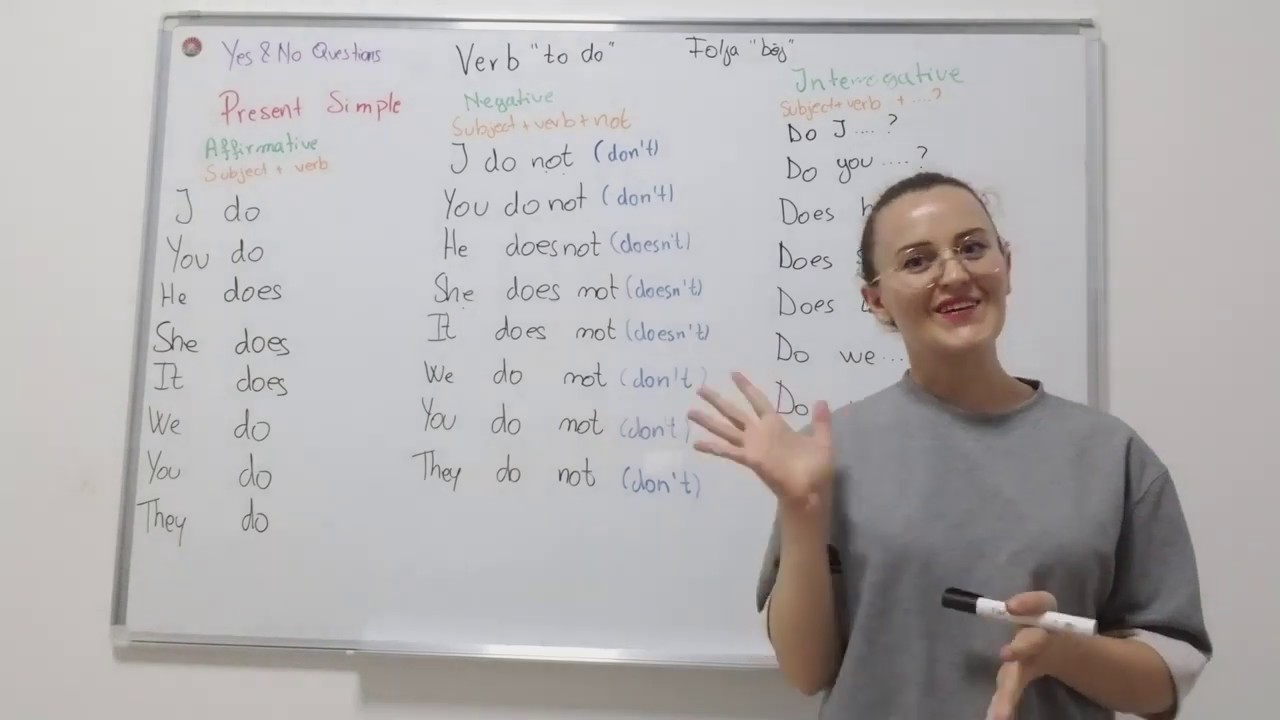 Yes & No Questions
Verb "to do"
Folja "bëj"
Present Simple
Affirmative
Subject + verb
I do
You do
He does
She does
It does
We do
You do
They do
Negative
Subject + verb + not
I do not (don't)
You do not (don't)
He does not (doesn't)
She does not (doesn't)
It does not (doesn't)
We do not (don't)
You do not (don't)
They do not (don't)
Interrogative
Subject + verb + ....?
Do I .... ?
Do you .... ?
Does
Does
Does
Do we ...
Do